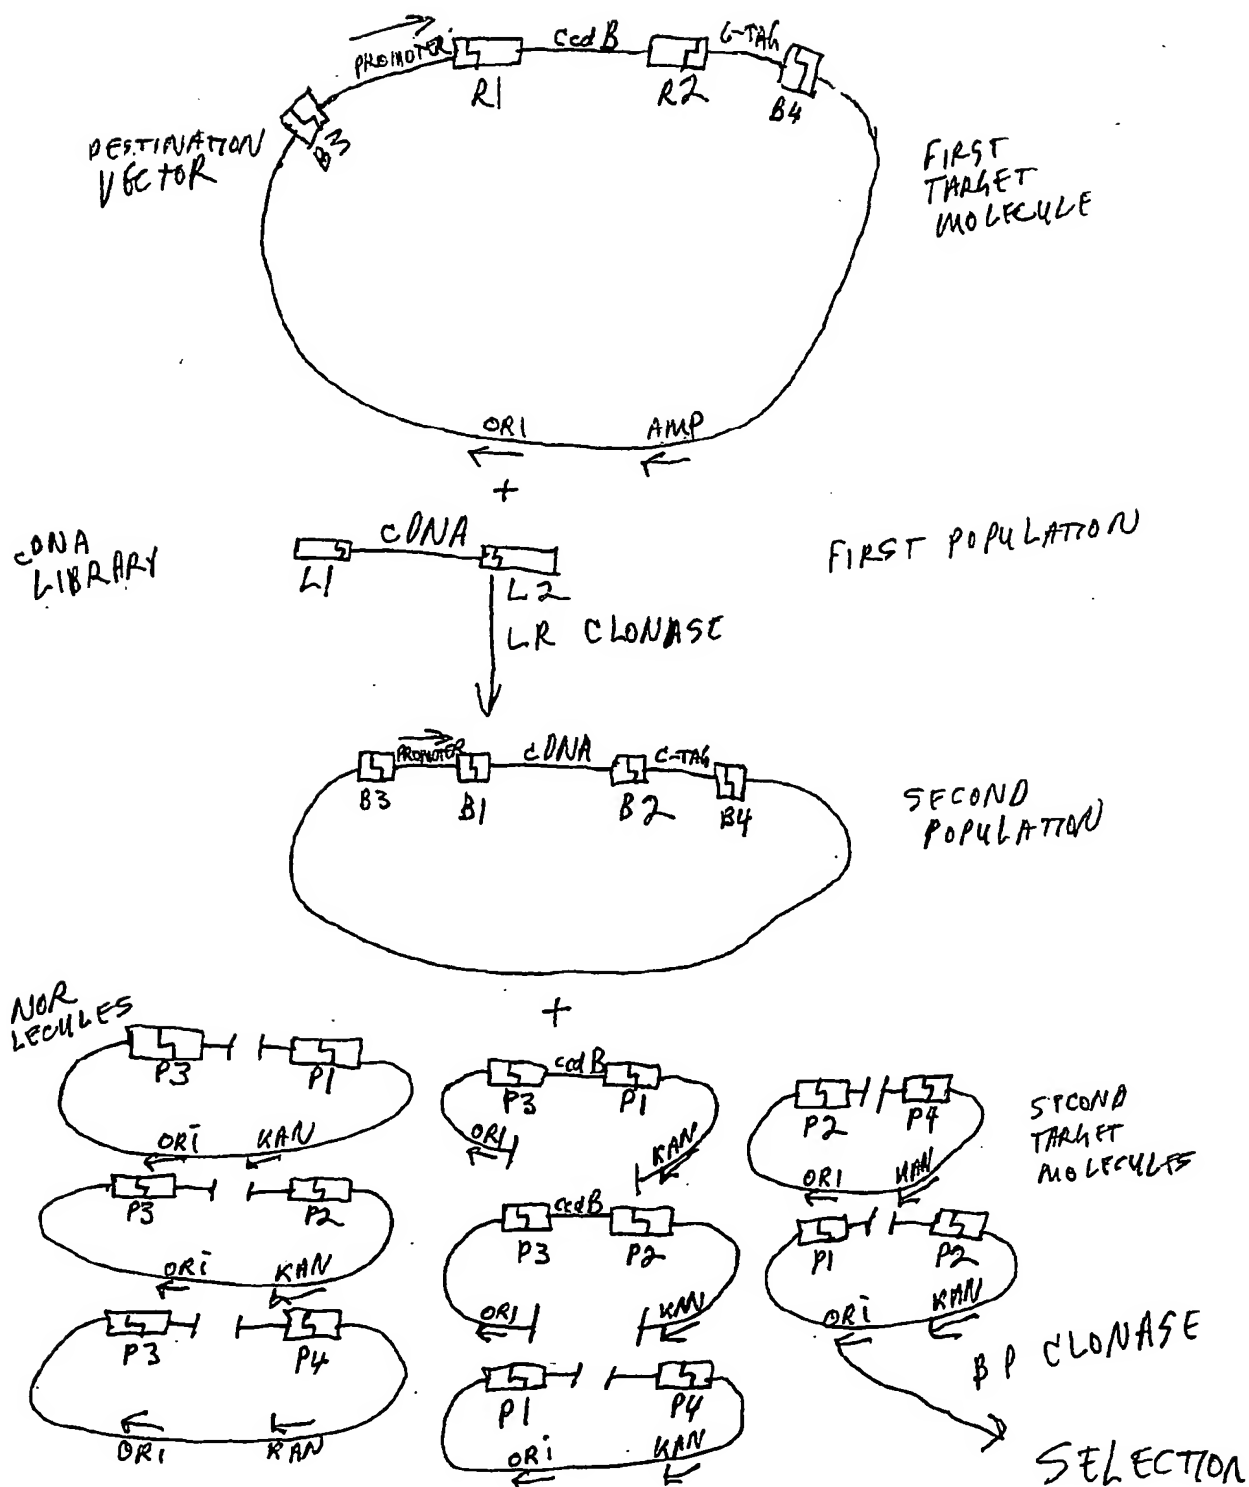 PROMOTER
CcdB
C-TAG
R1
R2
B4
B3
DESTINATION
VECTOR
FIRST
TARGET
MOLECULE
ORI
AMP
+
cDNA
LIBRARY
cDNA
L1
L2
FIRST POPULATION
LR CLONASE
PROMOTER
cDNA
C-TAG
B3
B1
B2
B4
SECOND
POPULATION
+
NOR
LECULES
P3
P1
ORI
KAN
P3
P2
ORI
KAN
P3
P4
ORI
KAN
ccdB
P3
P1
ORI
KAN
ccdB
P3
P2
ORI
KAN
P1
P4
ORI
KAN
P2
P4
ORI
KAN
P1
P2
ORI
KAN
SECOND
TARGET
MOLECULES
BP CLONASE
SELECTION